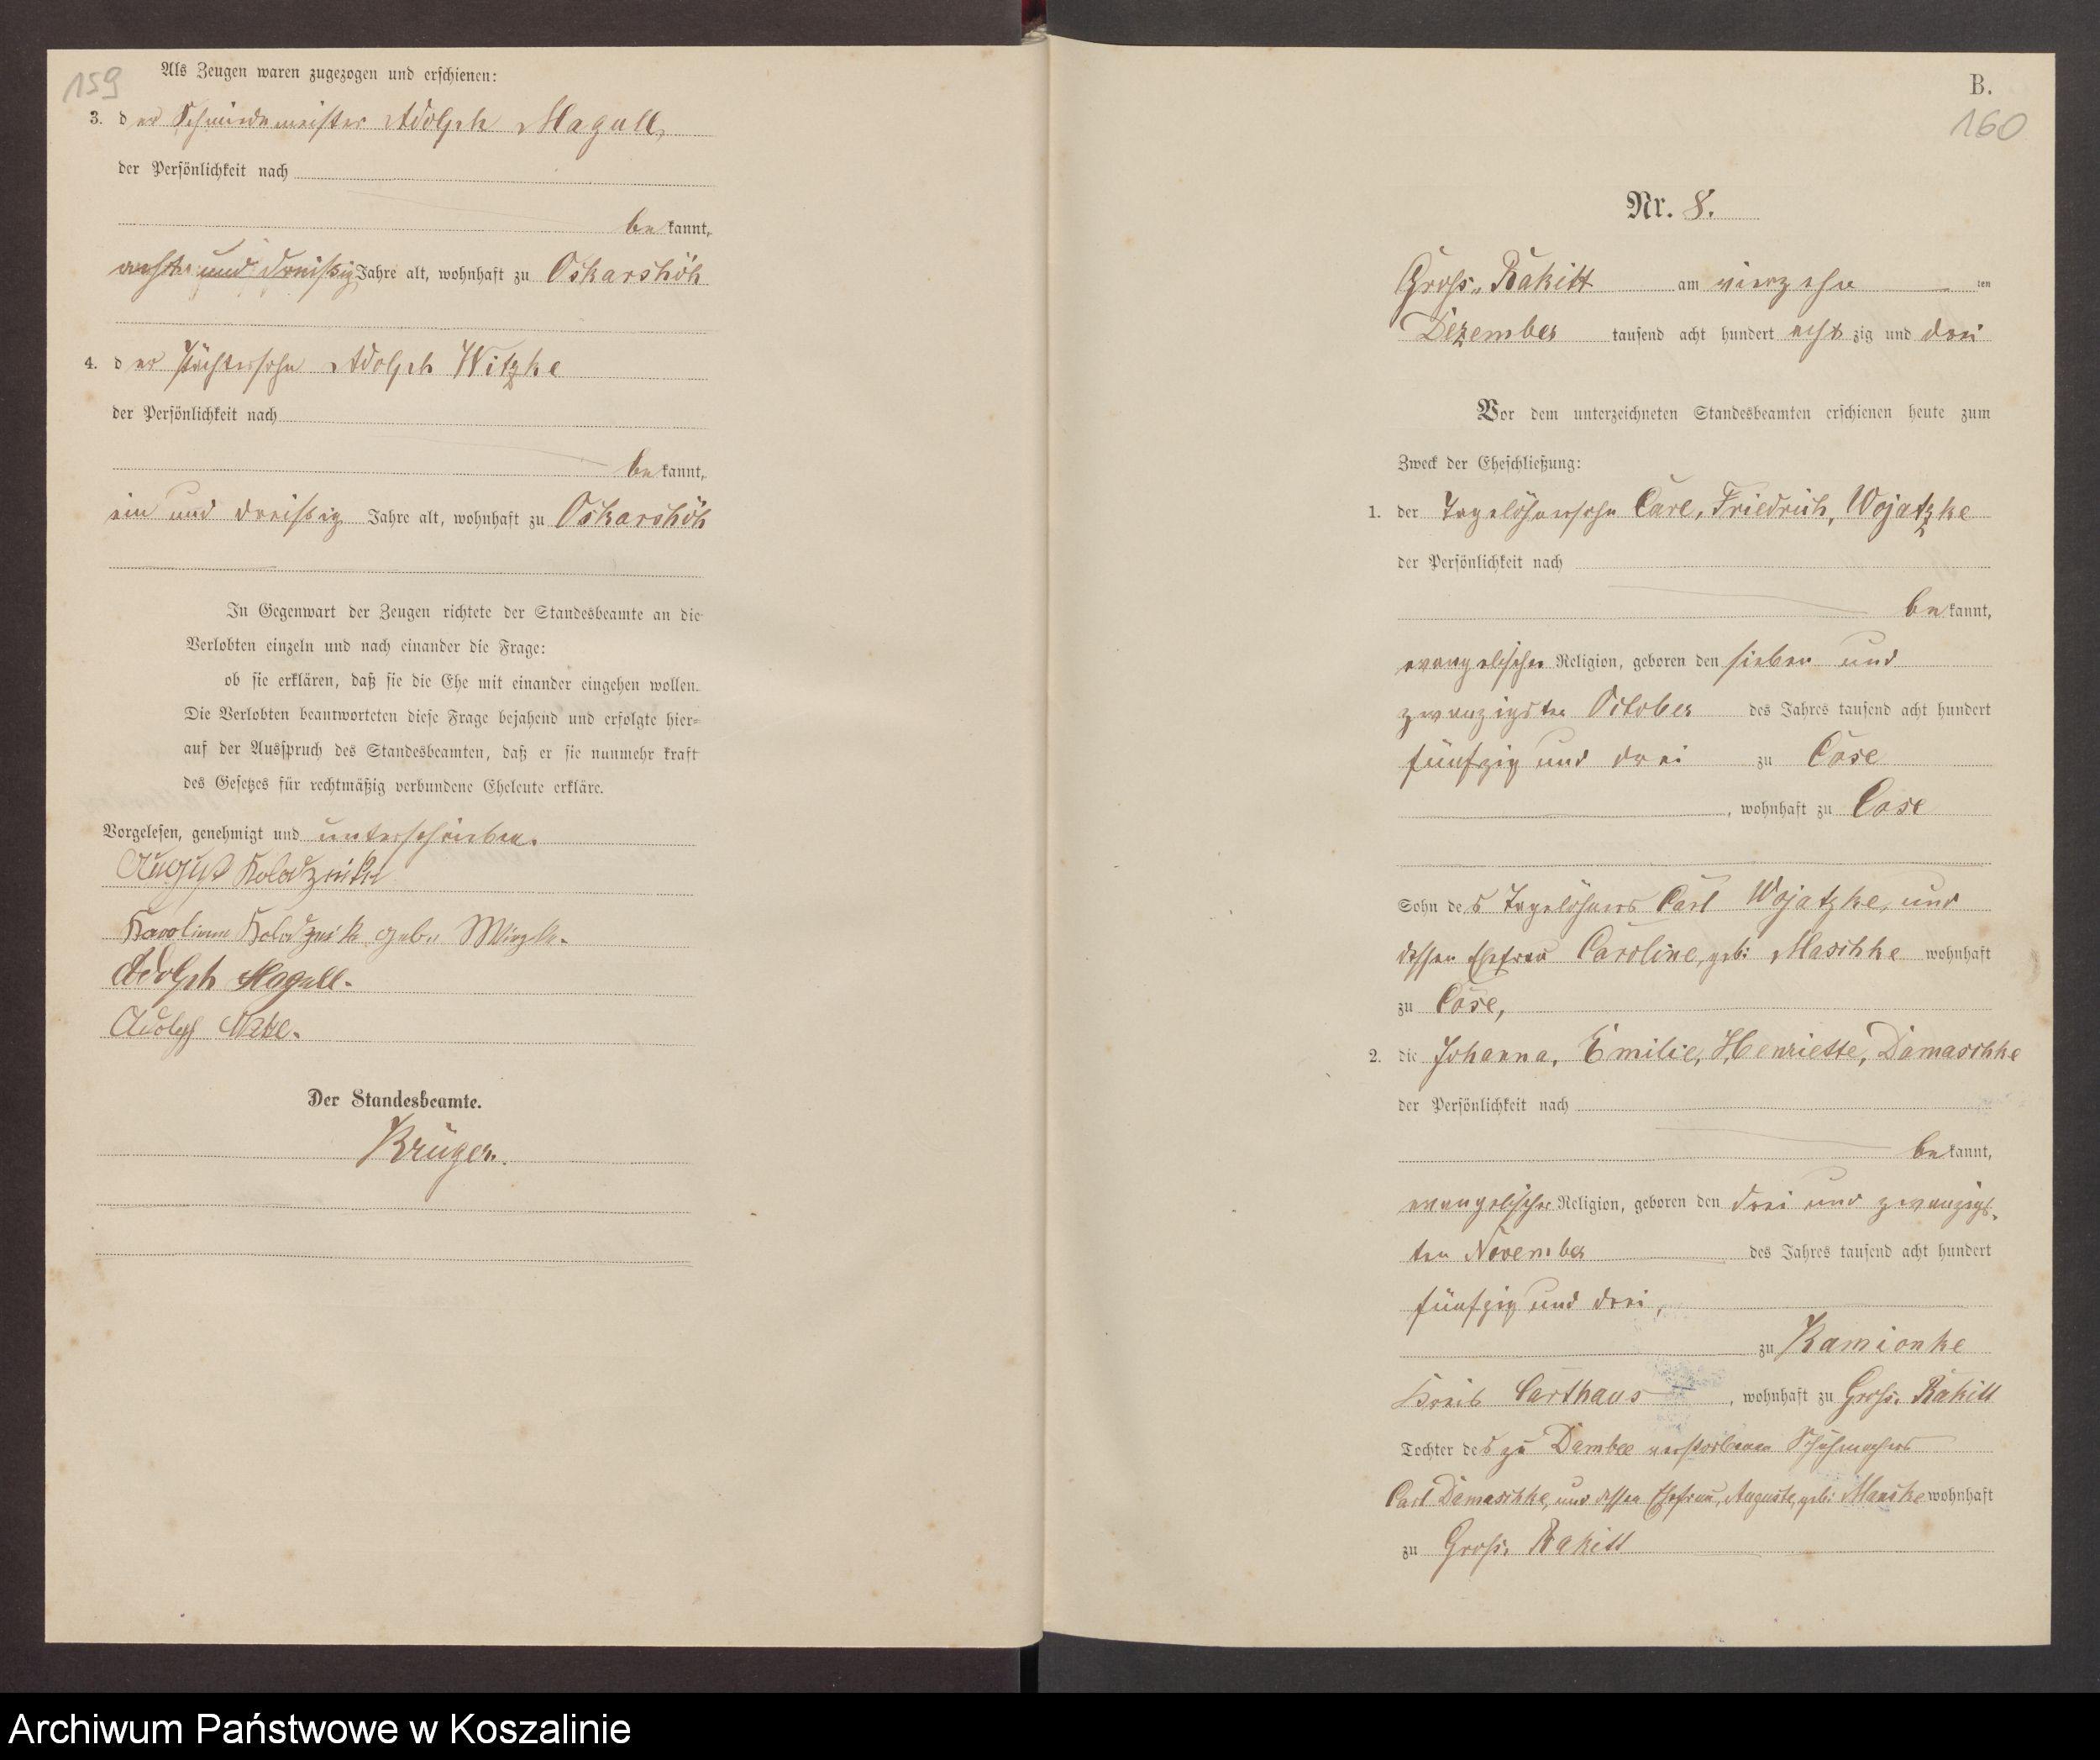 159
Als Zeugen waren zugezogen und erschienen:
3. der Schmiedemeister Adolph Magull,
der Persönlichkeit nach
bekannt,
acht und dreißig Jahre alt, wohnhaft zu Oskarshöh
4. der Pächtersohn Adolph Witzke
der Persönlichkeit nach
bekannt,
ein und dreißig Jahre alt, wohnhaft zu Oskarshöh
In Gegenwart der Zeugen richtete der Standesbeamte an die
Verlobten einzeln und nach einander die Frage:
ob sie erklären, daß sie die Ehe mit einander eingehen wollen.
Die Verlobten beantworteten diese Frage bejahend und erfolgte hier-
auf der Ausspruch des Standesbeamten, daß er sie nunmehr kraft
des Gesetzes für rechtmäßig verbundene Eheleute erkläre.
Vorgelesen, genehmigt und unterschrieben.
August
Karoline geb.
Adolph Magull.
Adolph
Der Standesbeamte.
Krüger.
B.
160
Nr. 8.
Gross-Rakitt am vierzehn ten
Dezember tausend acht hundert achtzig und drei
Vor dem unterzeichneten Standesbeamten erschienen heute zum
Zweck der Eheschließung:
1. der Tagelöhnersohn Carl, Friedrich, Wojatzke
der Persönlichkeit nach
bekannt,
evangelischer Religion, geboren den sieben und
zwanzigsten October des Jahres tausend acht hundert
fünfzig und drei zu Cose
, wohnhaft zu Cose
Sohn des Tagelöhners Carl Wojatzke, und
dessen Ehefrau Caroline, geb: Maschke wohnhaft
zu Cose,
2. die Johanna, Emilie, Henriette, Damaschke
der Persönlichkeit nach
bekannt,
evangelischer Religion, geboren den drei und zwanzigs-
ten November des Jahres tausend acht hundert
fünfzig und drei,
zu Kamionke
Kreis Carthaus , wohnhaft zu Gross. Rakitt
Tochter des zu Dambee verstorbenen Schuhmachers
Carl Damaschke, und dessen Ehefrau, Auguste, geb: wohnhaft
zu Gross. Rakitt
Archiwum Państwowe w Koszalinie